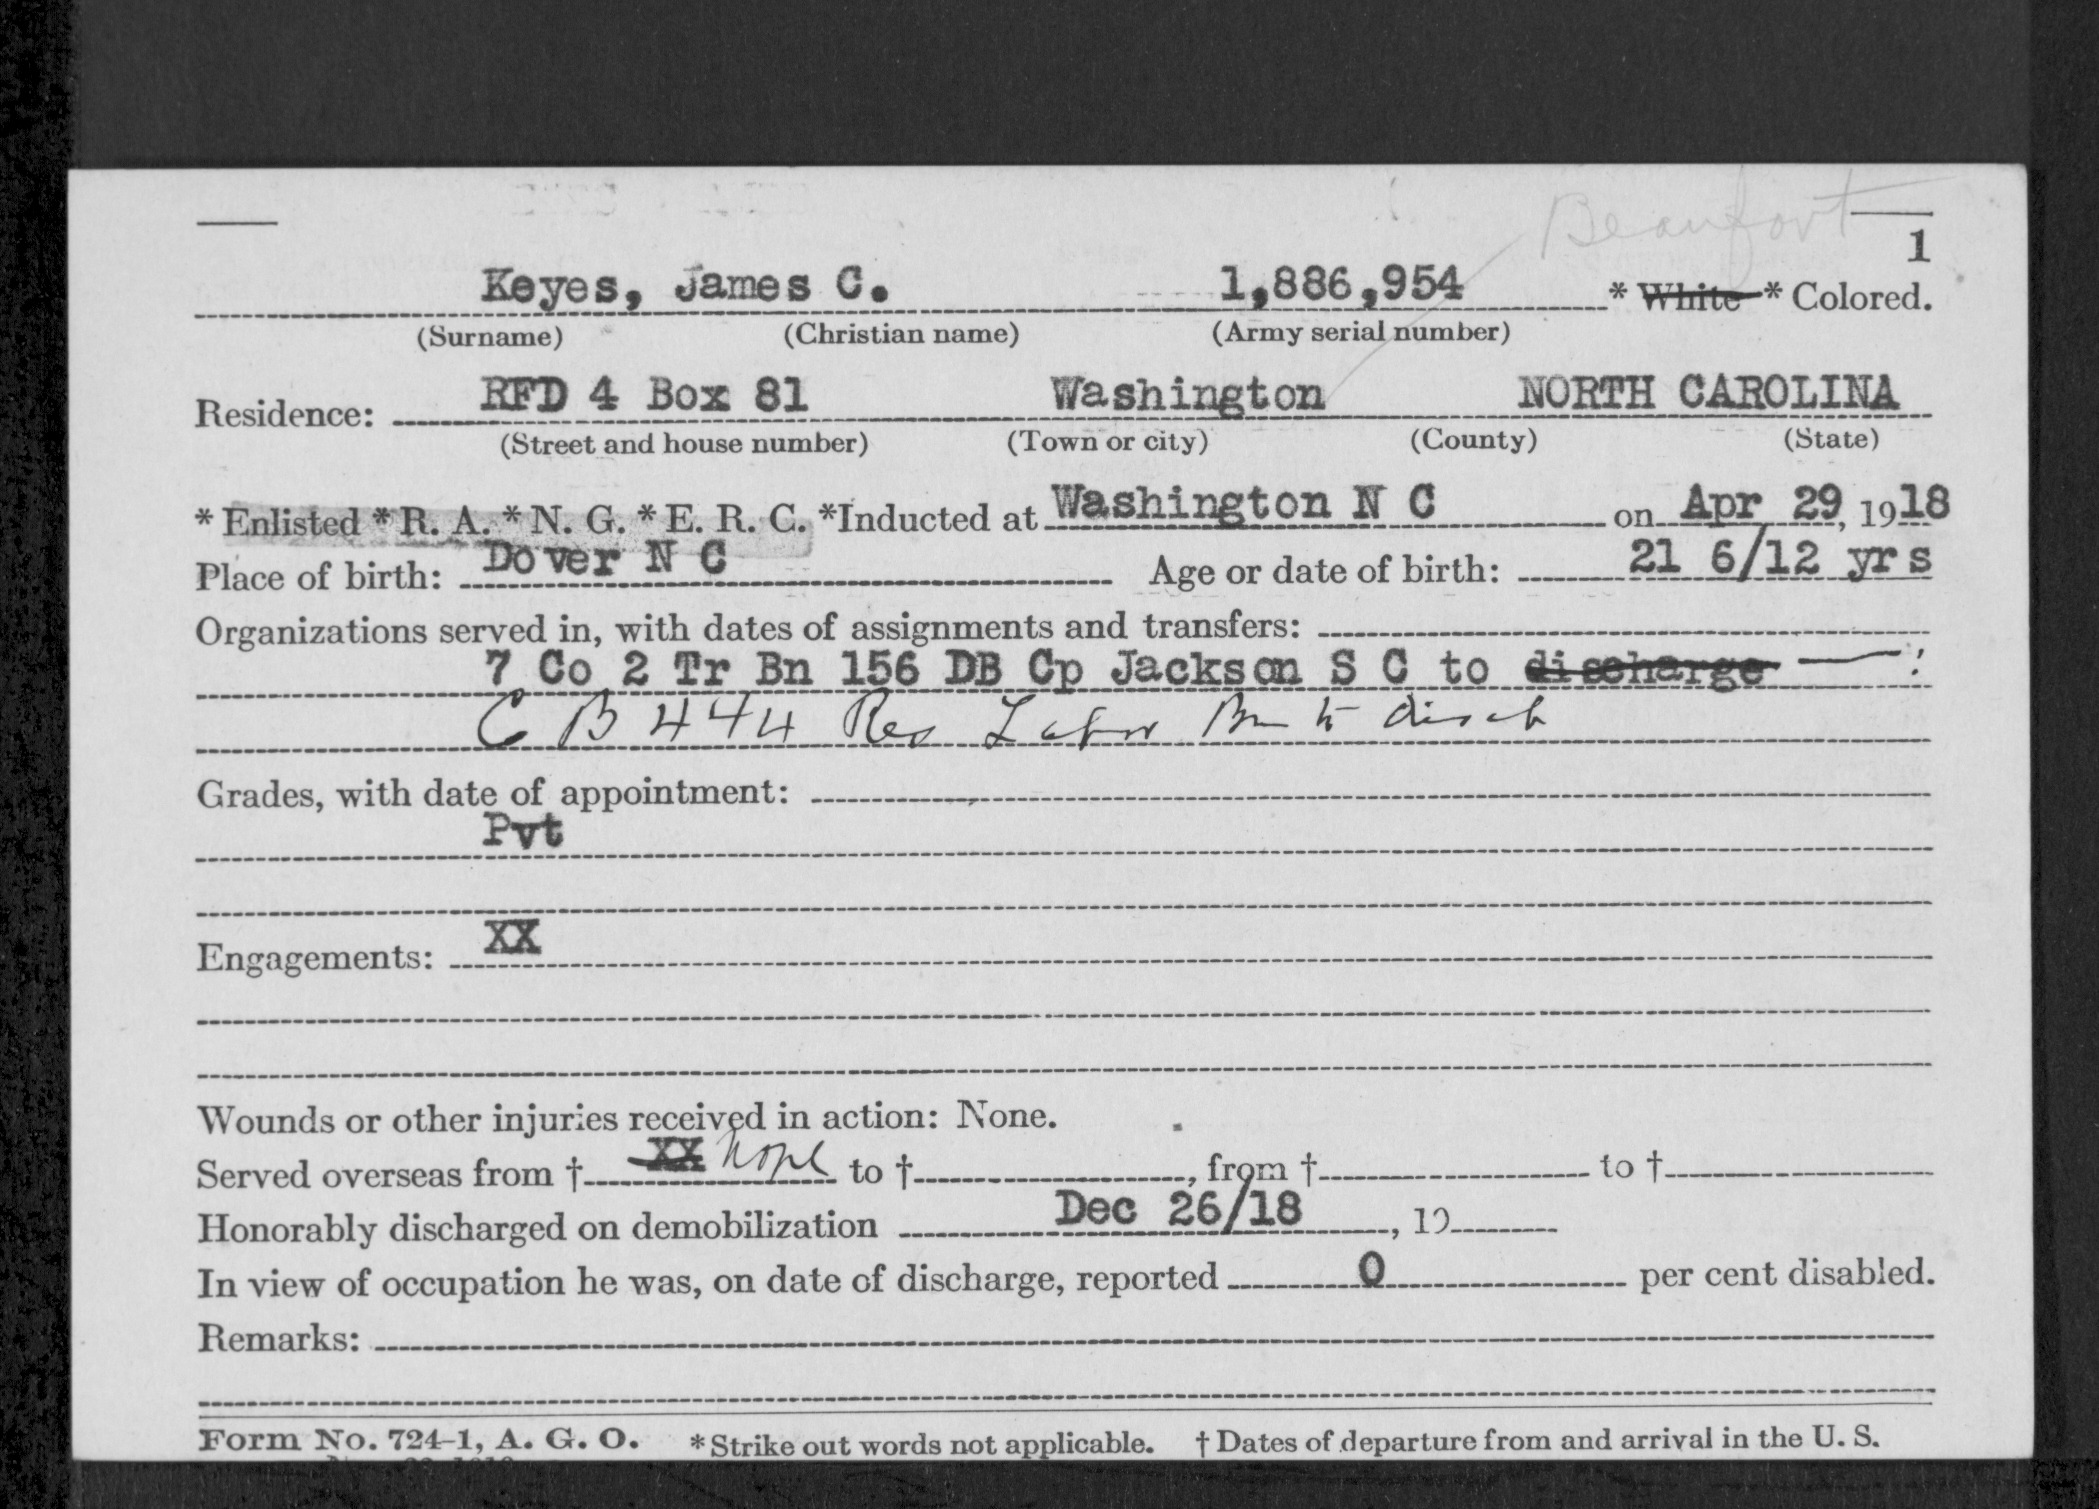 Beaufort
1
Keyes, James C. 1,886,954 * White * Colored.
(Surname) (Christian name) (Army serial number)
Residence: RFD 4 Box 81 Washington NORTH CAROLINA
(Street and house number) (Town or city) (County) (State)
* Enlisted * R. A. * N. G. * E. R. C. *Inducted at Washington N C on Apr 29, 1918
Place of birth: Dover N C Age or date of birth: 21 6/12 yrs
Organizations served in, with dates of assignments and transfers:
7 Co 2 Tr Bn 156 DB Cp Jackson S C to discharge
C B 444 Res Labor Bn to disch
Grades, with date of appointment:
Pvt
Engagements: XX
Wounds or other injuries received in action: None.
Served overseas from † XX none to †, from † to †
Honorably discharged on demobilization Dec 26/18, 19
In view of occupation he was, on date of discharge, reported 0 per cent disabled.
Remarks:
Form No. 724-1, A. G. O. * Strike out words not applicable. † Dates of departure from and arrival in the U. S.